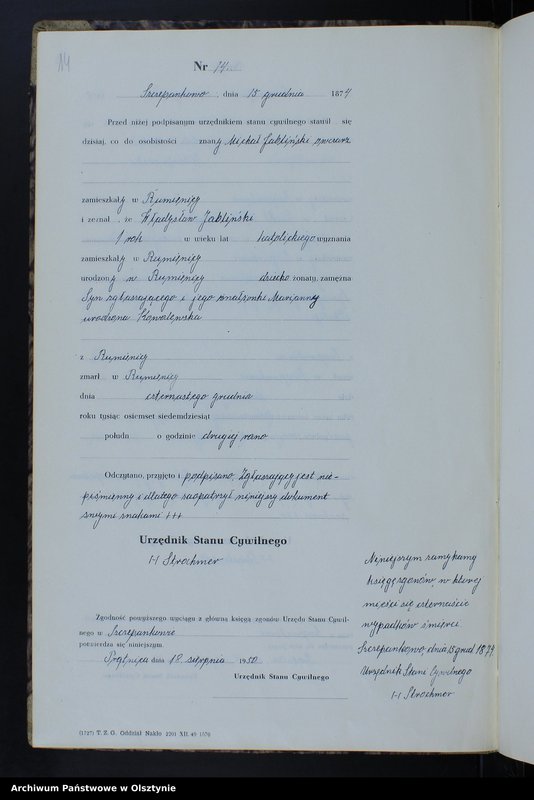 14
Nr 14.
Szczepankowo, dnia 15 grudnia 1874
Przed niżej podpisanym urzędnikiem stanu cywilnego stawił się
dzisiaj, co do osobistości znany Michał Jabliński owczarz
zamieszkały w Rumienicy
i zeznał, że Władysław Jabliński
1 rok w wieku lat katolickiego wyznania
zamieszkały w Rumienicy
urodzony w Rumienicy dziecko żonaty, zamężna
Syn zgłaszającego i jego małżonki Marianny
urodzona Kowalewska
z Rumienicy
zmarł w Rumienicy
dnia czternastego grudnia
roku tysiąc osiemset siedemdziesiąt
połudn o godzinie drugiej rano
Odczytano, przyjęto i podpisano, Zgłaszający jest nie-
piśmienny i dlatego zaopatrzył niniejszy dokument
swymi znakami +++
Urzędnik Stanu Cywilnego
/-/ Strochmer
Niniejszym zamykamy
księgę zgonów w której
mieści się czternaście
wypadków śmierci
Szczepankowo, dnia 15 grud. 1874
Urzędnik Stanu Cywilnego
/-/ Strochmer
Zgodność powyższego wyciągu z główną księgą zgonów Urzędu Stanu Cywil-
nego w Szczepankowie
potwierdza się niniejszym.
Prątnica dnia 18 sierpnia 1950
Urzędnik Stanu Cywilnego
(1727) T. Z. G. Oddział Nakło 2201 XII. 49 1570
Archiwum Państwowe w Olsztynie